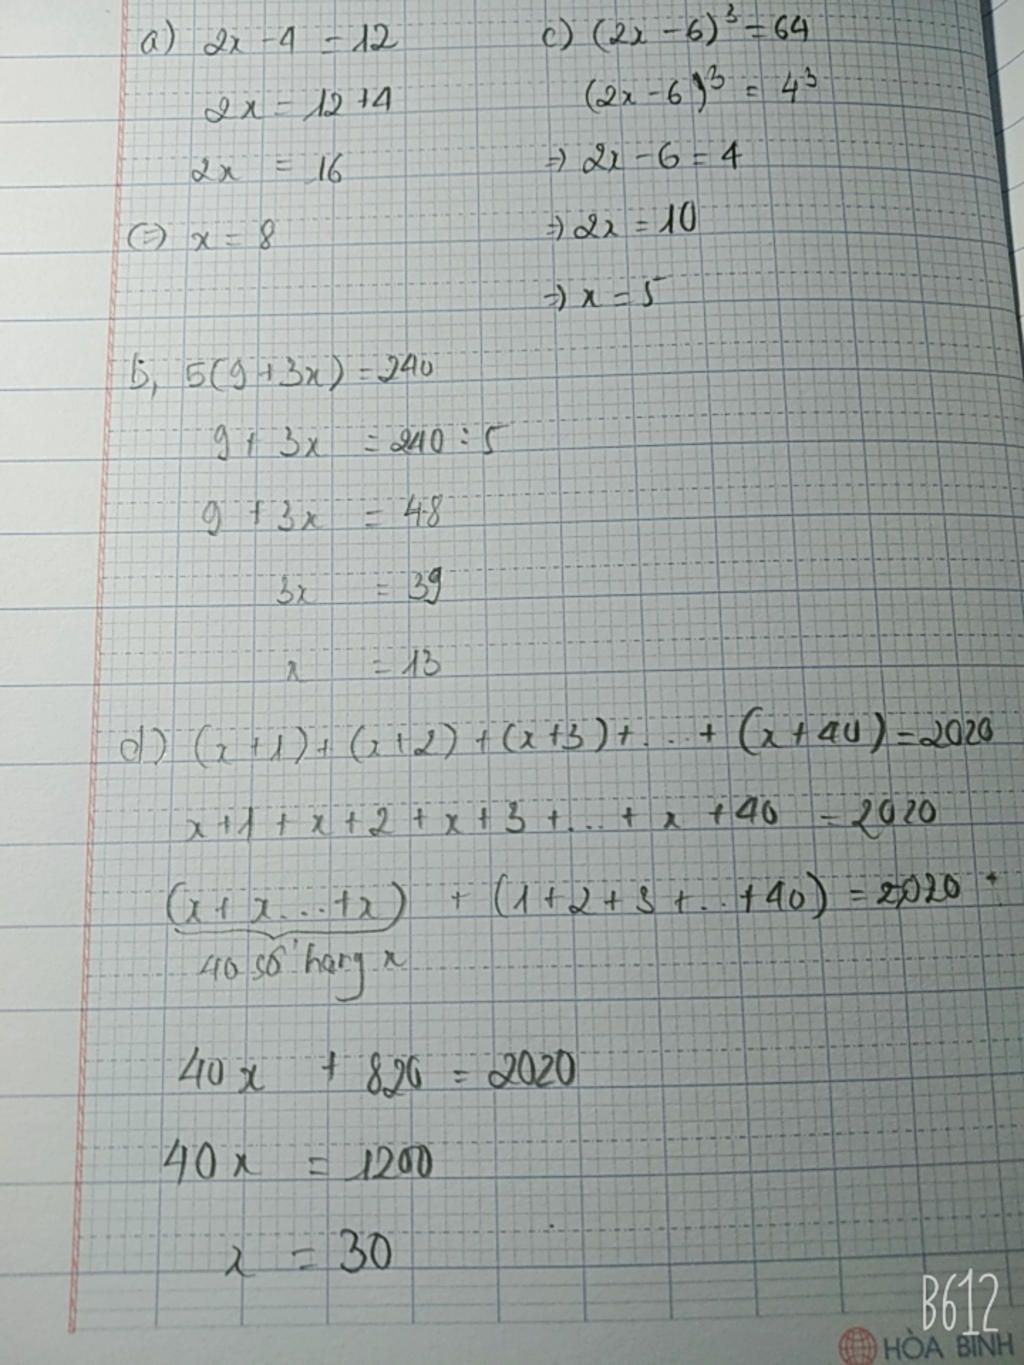 a) 2x - 4 = 12
2x = 12 + 4
2x = 16
(=) x = 8
c) (2x - 6)³ = 64
(2x - 6)³ = 4³
=) 2x - 6 = 4
=) 2x = 10
=) x = 5
b, 5(9 + 3x) = 240
9 + 3x = 240 : 5
9 + 3x = 48
3x = 39
x = 13
d) (x + 1) + (x + 2) + (x + 3) + ... + (x + 40) = 2020
x + 1 + x + 2 + x + 3 + ... + x + 40 = 2020
(x + x ... + x) + (1 + 2 + 3 + ... + 40) = 2020
40 số hạng x
40x + 820 = 2020
40x = 1200
x = 30
B612
HÒA BÌNH